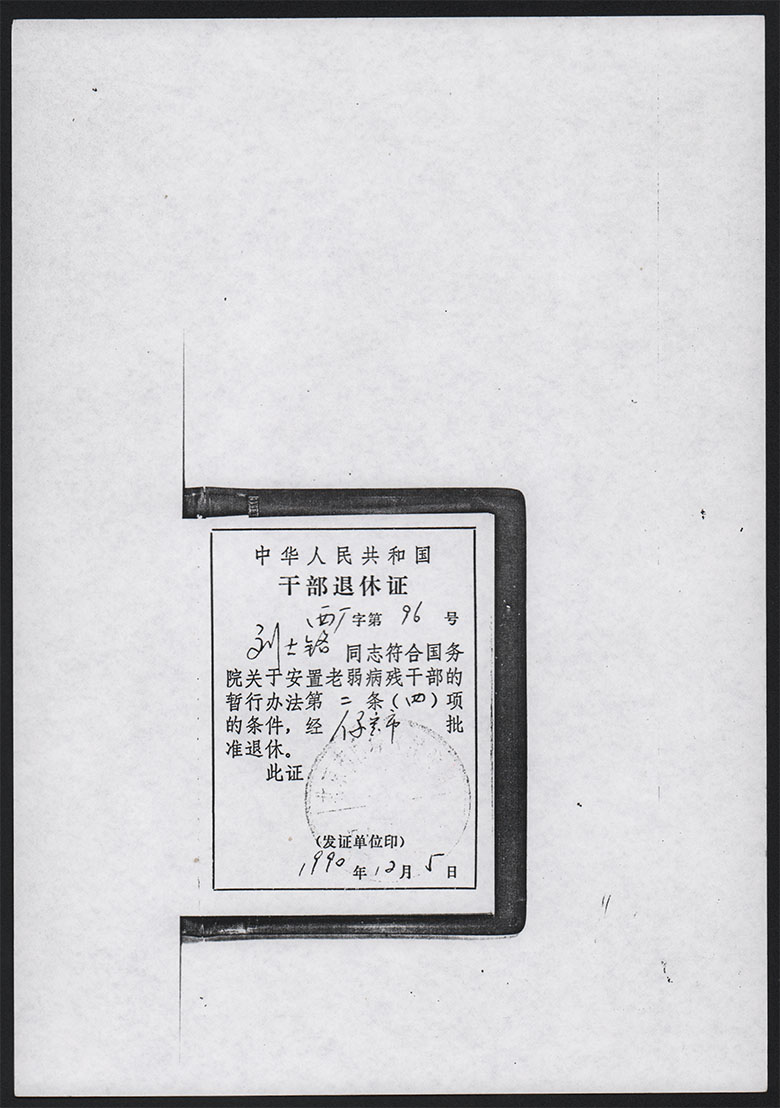 中华人民共和国
干部退休证
西厂字第 96 号
刘士铭 同志符合国务
院关于安置老弱病残干部的
暂行办法第二条(四)项
的条件,经 市 批
准退休。
此证
(发证单位印)
1990年12月5日